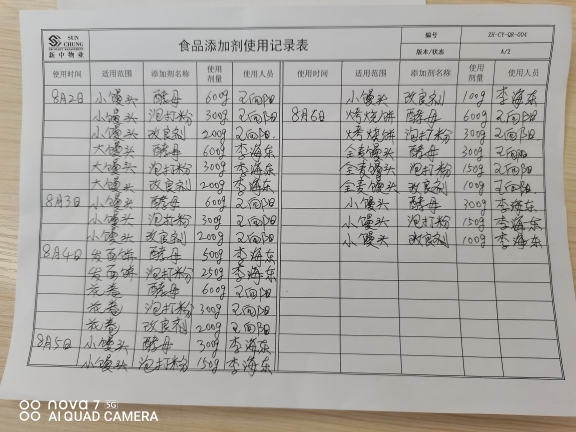 SUN CHUNG
新中物业
食品添加剂使用记录表
编号 ZH-CY-QR-004
版本/状态 A/2
使用时间 适用范围 添加剂名称 使用剂量 使用人员 使用时间 适用范围 添加剂名称 使用剂量 使用人员
8月2日 小馒头 酵母 600g 王向阳 小馒头 改良剂 100g 李海东
小馒头 泡打粉 300g 王向阳 8月6日 烤烧饼 酵母 600g 王向阳
小馒头 改良剂 200g 王向阳 烤烧饼 泡打粉 300g 王向阳
大馒头 酵母 600g 李海东 全麦馒头 酵母 300g 王向阳
大馒头 泡打粉 300g 李海东 全麦馒头 泡打粉 150g 王向阳
大馒头 改良剂 200g 李海东 全麦馒头 改良剂 100g 王向阳
8月3日 小馒头 酵母 600g 王向阳 小馒头 酵母 300g 李海东
小馒头 泡打粉 300g 王向阳 小馒头 泡打粉 150g 李海东
小馒头 改良剂 200g 王向阳 小馒头 改良剂 100g 李海东
8月4日 发面饼 酵母 500g 李海东
发面饼 泡打粉 250g 李海东
花卷 酵母 600g 王向阳
花卷 泡打粉 300g 王向阳
花卷 改良剂 200g 王向阳
8月5日 小馒头 酵母 300g 李海东
小馒头 泡打粉 150g 李海东
nova 7 5G
AI QUAD CAMERA